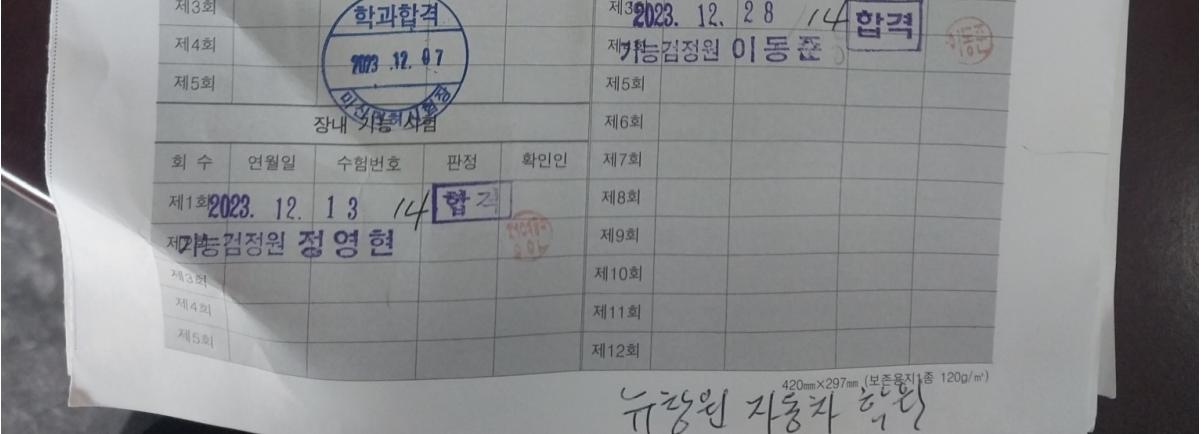 제3회
학과합격
제4회
2023 .12. 07
제5회
장내 기능 시험
회 수 연월일 수험번호 판정 확인인
제1회 2023. 12. 13 14 합격
기능검정원 정영현
제3회
제4회
제5회
2023. 12. 28 14 합격
기능검정원 이동준
제5회
제6회
제7회
제8회
제9회
제10회
제11회
제12회
420㎜×297㎜ (보존용지1종 120g/㎡)
뉴창원 자동차 학원